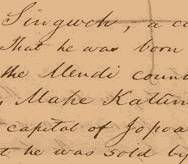 Singweh, a c
That he was born
the Mendi coun
Make Kattum
capital of Jopoa
t he was sold b